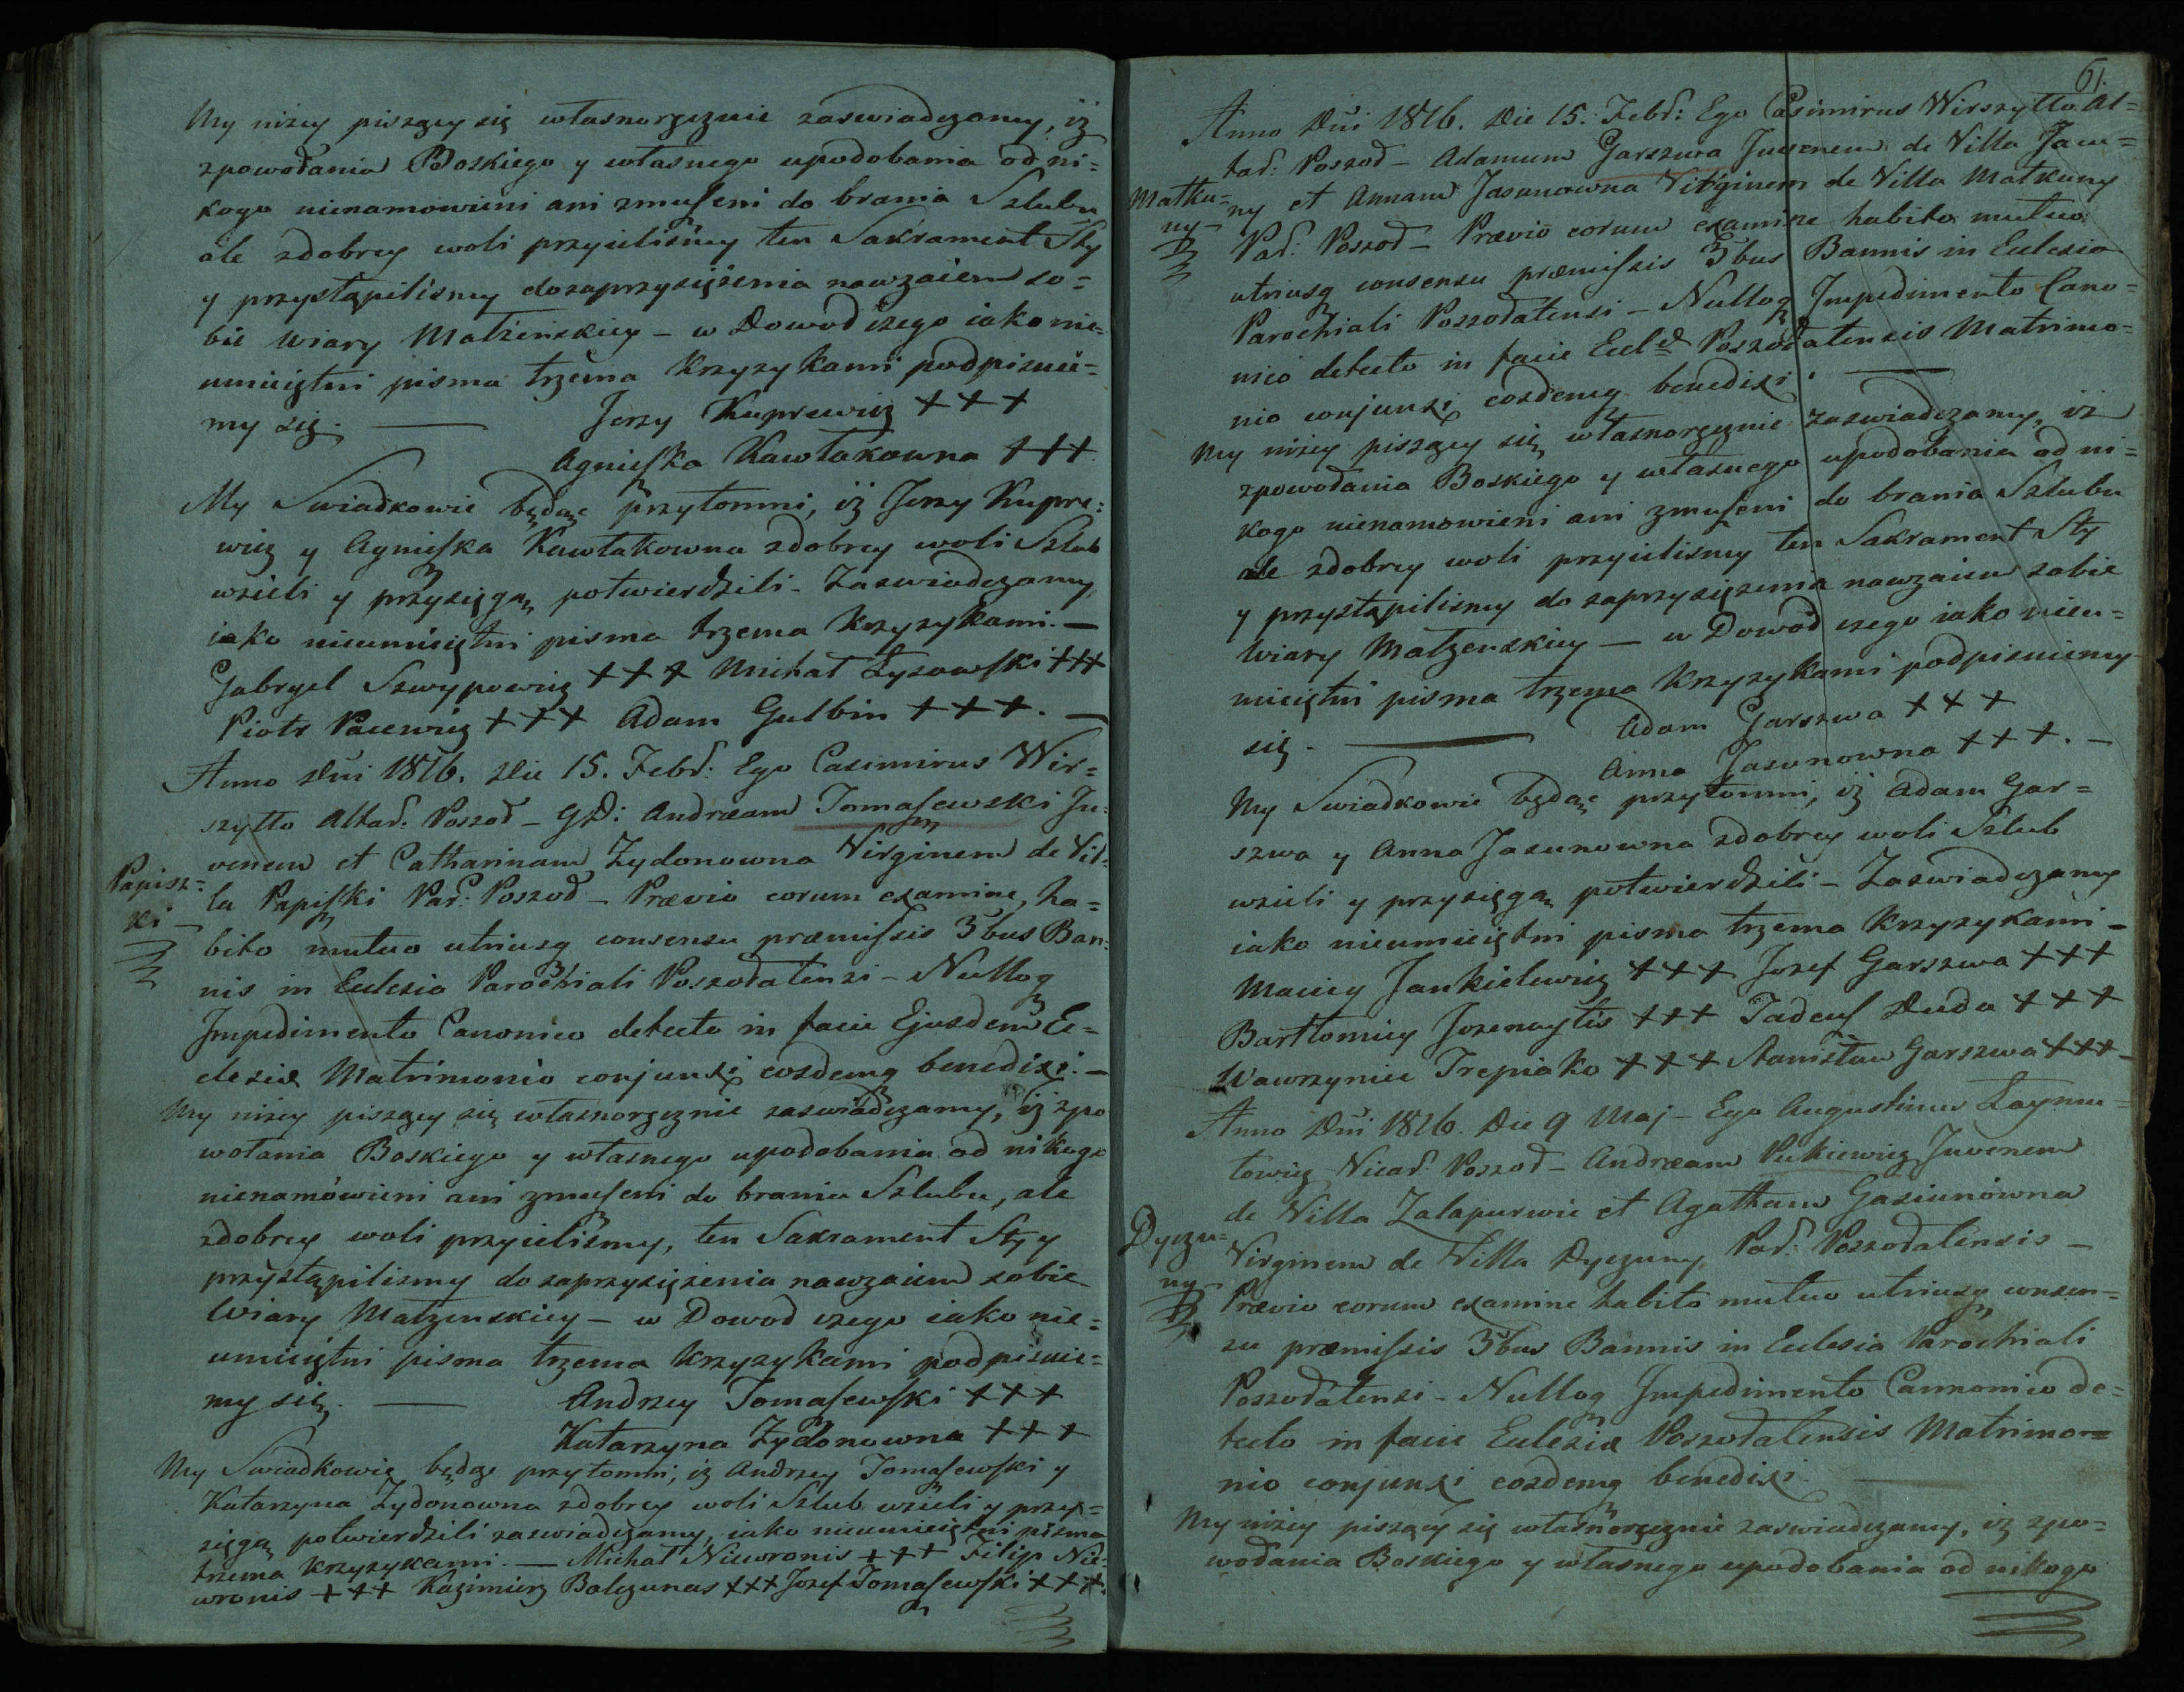 My niżey piszący się własnoręcznie zaswiadczamy, iż
zpowołania Boskiego y własnego upodobania od ni=
kogo nienamowieni ani zmuszeni do brania Szlubu
ale zdobrey woli przyieliśmy ten Sakrament Sty
y przystąpilismy dozaprzysiężenia nawzaiem so=
bie Wiary Małżenskiey – w Dowod czego iako nie=
umieiętni pisma trzema Krzyzykami podpisuie=
my się. — Jerzy Kuprewicz +++
Agnieszka Kawłakowna +++
My Swiadkowie będąc przytomni, iż Jerzy Kupre=
wicz y Agnieszka Kawłakowna zdobrey woli Szlub
wzieli y przysięgą potwierdzili – Zaswiadczamy
iako nieumieiętni pisma trzema Krzyzykami. —
Gabryel Szwypowicz +++ Michał Łysowski +++
Piotr Pacewicz +++ Adam Gulbin +++. —
Anno Dni 1816. Die 15. Febr: Ego Casimirus Wir=
szyłło Altar. Poszoł – GD: Andræam Tomaszewski Ju=
venem et Catharinam Zydonowna Virginem de Vil=
Papisz=
ki –
la Papiszki Par: Poszoł – Prævio eorum examine, ha=
bito mutuo utriusq consensu præmissis 3bus Ban=
nis in Eclesia Parochiali Poszołatensi – Nulloq
Impedimento Canonico detecto in facie Ejusdem Ec=
clesiæ Matrimonio conjunxi eosdemq benedixi. —
My niżey piszący się własnoręcznie zaswiadczamy, iż zpo
wołania Boskiego y własnego upodobania od nikogo
nienamówieni ani zmuszeni do brania Szlubu, ale
zdobrey woli przyieliśmy, ten Sakrament Sty y
przystąpilismy do zaprzysiężenia nawzaiem sobie
Wiary Małzenskiey – w Dowod czego iako nie=
umieiętni pisma trzema Krzyzykami podpisuie=
my się. — Andrzey Tomaszewski +++
Katarzyna Zydonowna +++
My Swiadkowie będąc przytomni, iz Andrzey Tomaszewski y
Katarzyna Zydonowna zdobrey woli Szlub wzieli y przy=
sięgą potwierdzili zaswiadczamy, iako nieumieiętni pisma
trzema Krzyzykami. — Michał Niewronis +++ Filip Nie=
wronis +++ Kazimierz Balczunas +++ Jozef Tomaszewski +++.
61.
Anno Dni 1816. Die 15. Febr: Ego Casimirus Wirszyłło Al=
tar: Poszoł – Adamum Garszwa Juvenem de Villa Jaw=
Matku=
ny –
ny et Annam Jasunowna Virginem de Villa Matkuny
Par: Poszoł – Prævio eorum examine habito mutuo
utriusq consensu præmissis 3bus Bannis in Eclesia
Parochiali Poszołatensi – Nulloq Impedimento Cano=
nico detecto in facie Ecl. Poszołatensis Matrimo=
nio conjunxi eosdemq benedixi. —
My niżey piszący się własnoręcznie zaswiadczamy, iż
zpowołania Boskiego y własnego upodobania od ni=
kogo nienamowieni ani zmuszeni do brania Szlubu
ale zdobrey woli przyieliśmy ten Sakrament Sty
y przystąpilismy do zaprzysiężenia nawzaiem sobie
Wiary Małzenskiey — w Dowod czego iako nieu=
mieiętni pisma trzema Krzyzykami podpisuiemy
się. — Adam Garszwa +++
Anna Jasunowna +++. —
My Swiadkowie będąc przytomni, iż Adam Gar=
szwa y Anna Jasunowna zdobrey woli Szlub
wzieli y przysięgą potwierdzili – Zaswiadczamy
iako nieumieiętni pisma trzema Krzyzykami –
Maciey Jankielewicz +++ Jozef Garszwa +++
Bartłomiey Jozenaytis +++ Tadeusz Duda +++
Wawrzyniec Trepiako +++ Stanisław Garszwa +++ –
Anno Dni 1816. Die 9 Maj – Ego Augustinus Łaymu=
towicz Vicar: Poszoł – Andræam Pukiewicz Juvenem
de Villa Zalapurwie et Agatham Gasiunówna
Dyczu=
ny –
Virginem de Villa Dyczuny Par: Poszołatensis —
Prævio eorum examine habito mutuo utriusq consen=
su præmissis 3bus Bannis in Eclesia Parochiali
Poszołatensi – Nulloq Impedimento Cannonico de=
tecto in facie Eclesiæ Poszołatensis Matrimo=
nio conjunxi eosdemq benedixi. —
My niżey piszący się własnoręcznie zaswiadczamy, iż zpo=
wołania Boskiego y własnego upodobania od nikogo